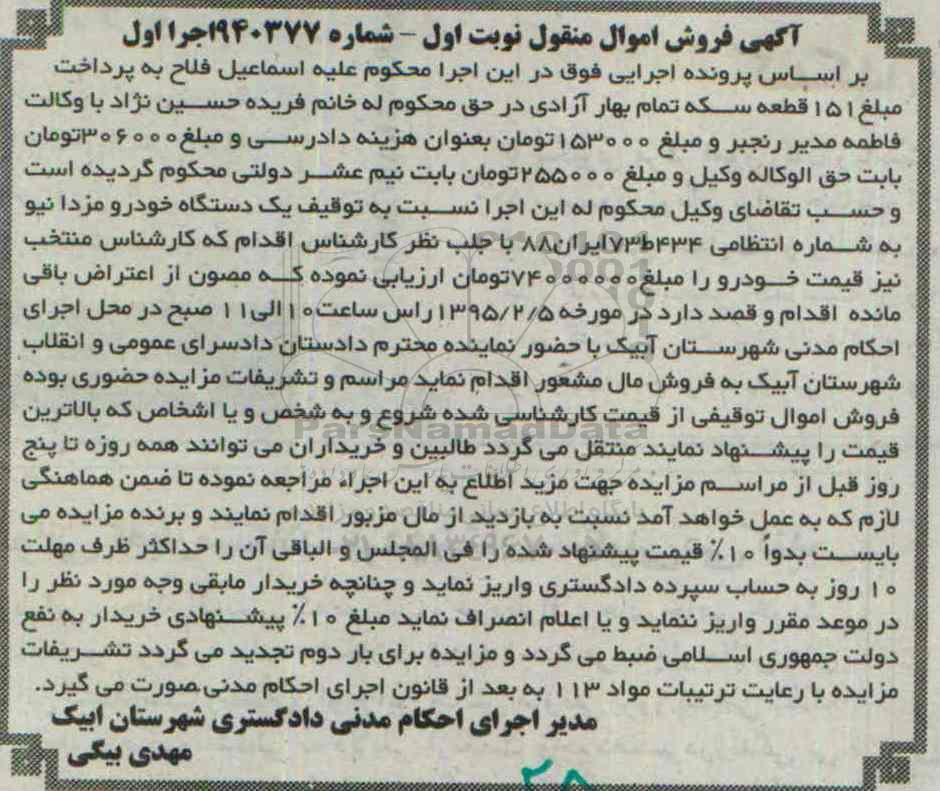 آگهی فروش اموال منقول نوبت اول - شماره ۹۴۰۳۷۷اجرا اول
بر اساس پرونده اجرایی فوق در این اجرا محکوم علیه اسماعیل فلاح به پرداخت
مبلغ۱۵۱قطعه سکه تمام بهار آزادی در حق محکوم له خانم فریده حسین نژاد با وکالت
فاطمه مدیر رنجبر و مبلغ ۱۵۳۰۰۰تومان بعنوان هزینه دادرسی و مبلغ۳۰۶۰۰۰تومان
بابت حق الوکاله وکیل و مبلغ ۲۵۵۰۰۰تومان بابت نیم عشر دولتی محکوم گردیده است
و حسب تقاضای وکیل محکوم له این اجرا نسبت به توقیف یک دستگاه خودرو مزدا نیو
به شماره انتظامی ۴۳۴ط۷۳ایران۸۸ با جلب نظر کارشناس اقدام که کارشناس منتخب
نیز قیمت خودرو را مبلغ۷۴۰۰۰۰۰۰تومان ارزیابی نموده که مصون از اعتراض باقی
مانده اقدام و قصد دارد در مورخه ۱۳۹۵/۲/۵راس ساعت۱۰الی۱۱ صبح در محل اجرای
احکام مدنی شهرستان آبیک با حضور نماینده محترم دادستان دادسرای عمومی و انقلاب
شهرستان آبیک به فروش مال مشعور اقدام نماید مراسم و تشریفات مزایده حضوری بوده
فروش اموال توقیفی از قیمت کارشناسی شده شروع و به شخص و یا اشخاص که بالاترین
ParsNamadData
قیمت را پیشنهاد نمایند منتقل می گردد طالبین و خریداران می توانند همه روزه تا پنج
روز قبل از مراسم مزایده جهت مزید اطلاع به این اجراء مراجعه نموده تا ضمن هماهنگی
لازم که به عمل خواهد آمد نسبت به بازدید از مال مزبور اقدام نمایند و برنده مزایده می
بایست بدواً ۱۰٪ قیمت پیشنهاد شده را فی المجلس و الباقی آن را حداکثر ظرف مهلت
۱۰ روز به حساب سپرده دادگستری واریز نماید و چنانچه خریدار مابقی وجه مورد نظر را
در موعد مقرر واریز ننماید و یا اعلام انصراف نماید مبلغ ۱۰٪ پیشنهادی خریدار به نفع
دولت جمهوری اسلامی ضبط می گردد و مزایده برای بار دوم تجدید می گردد تشریفات
مزایده با رعایت ترتیبات مواد ۱۱۳ به بعد از قانون اجرای احکام مدنی صورت می گیرد.
مدیر اجرای احکام مدنی دادگستری شهرستان ابیک
مهدی بیگی
۲۸